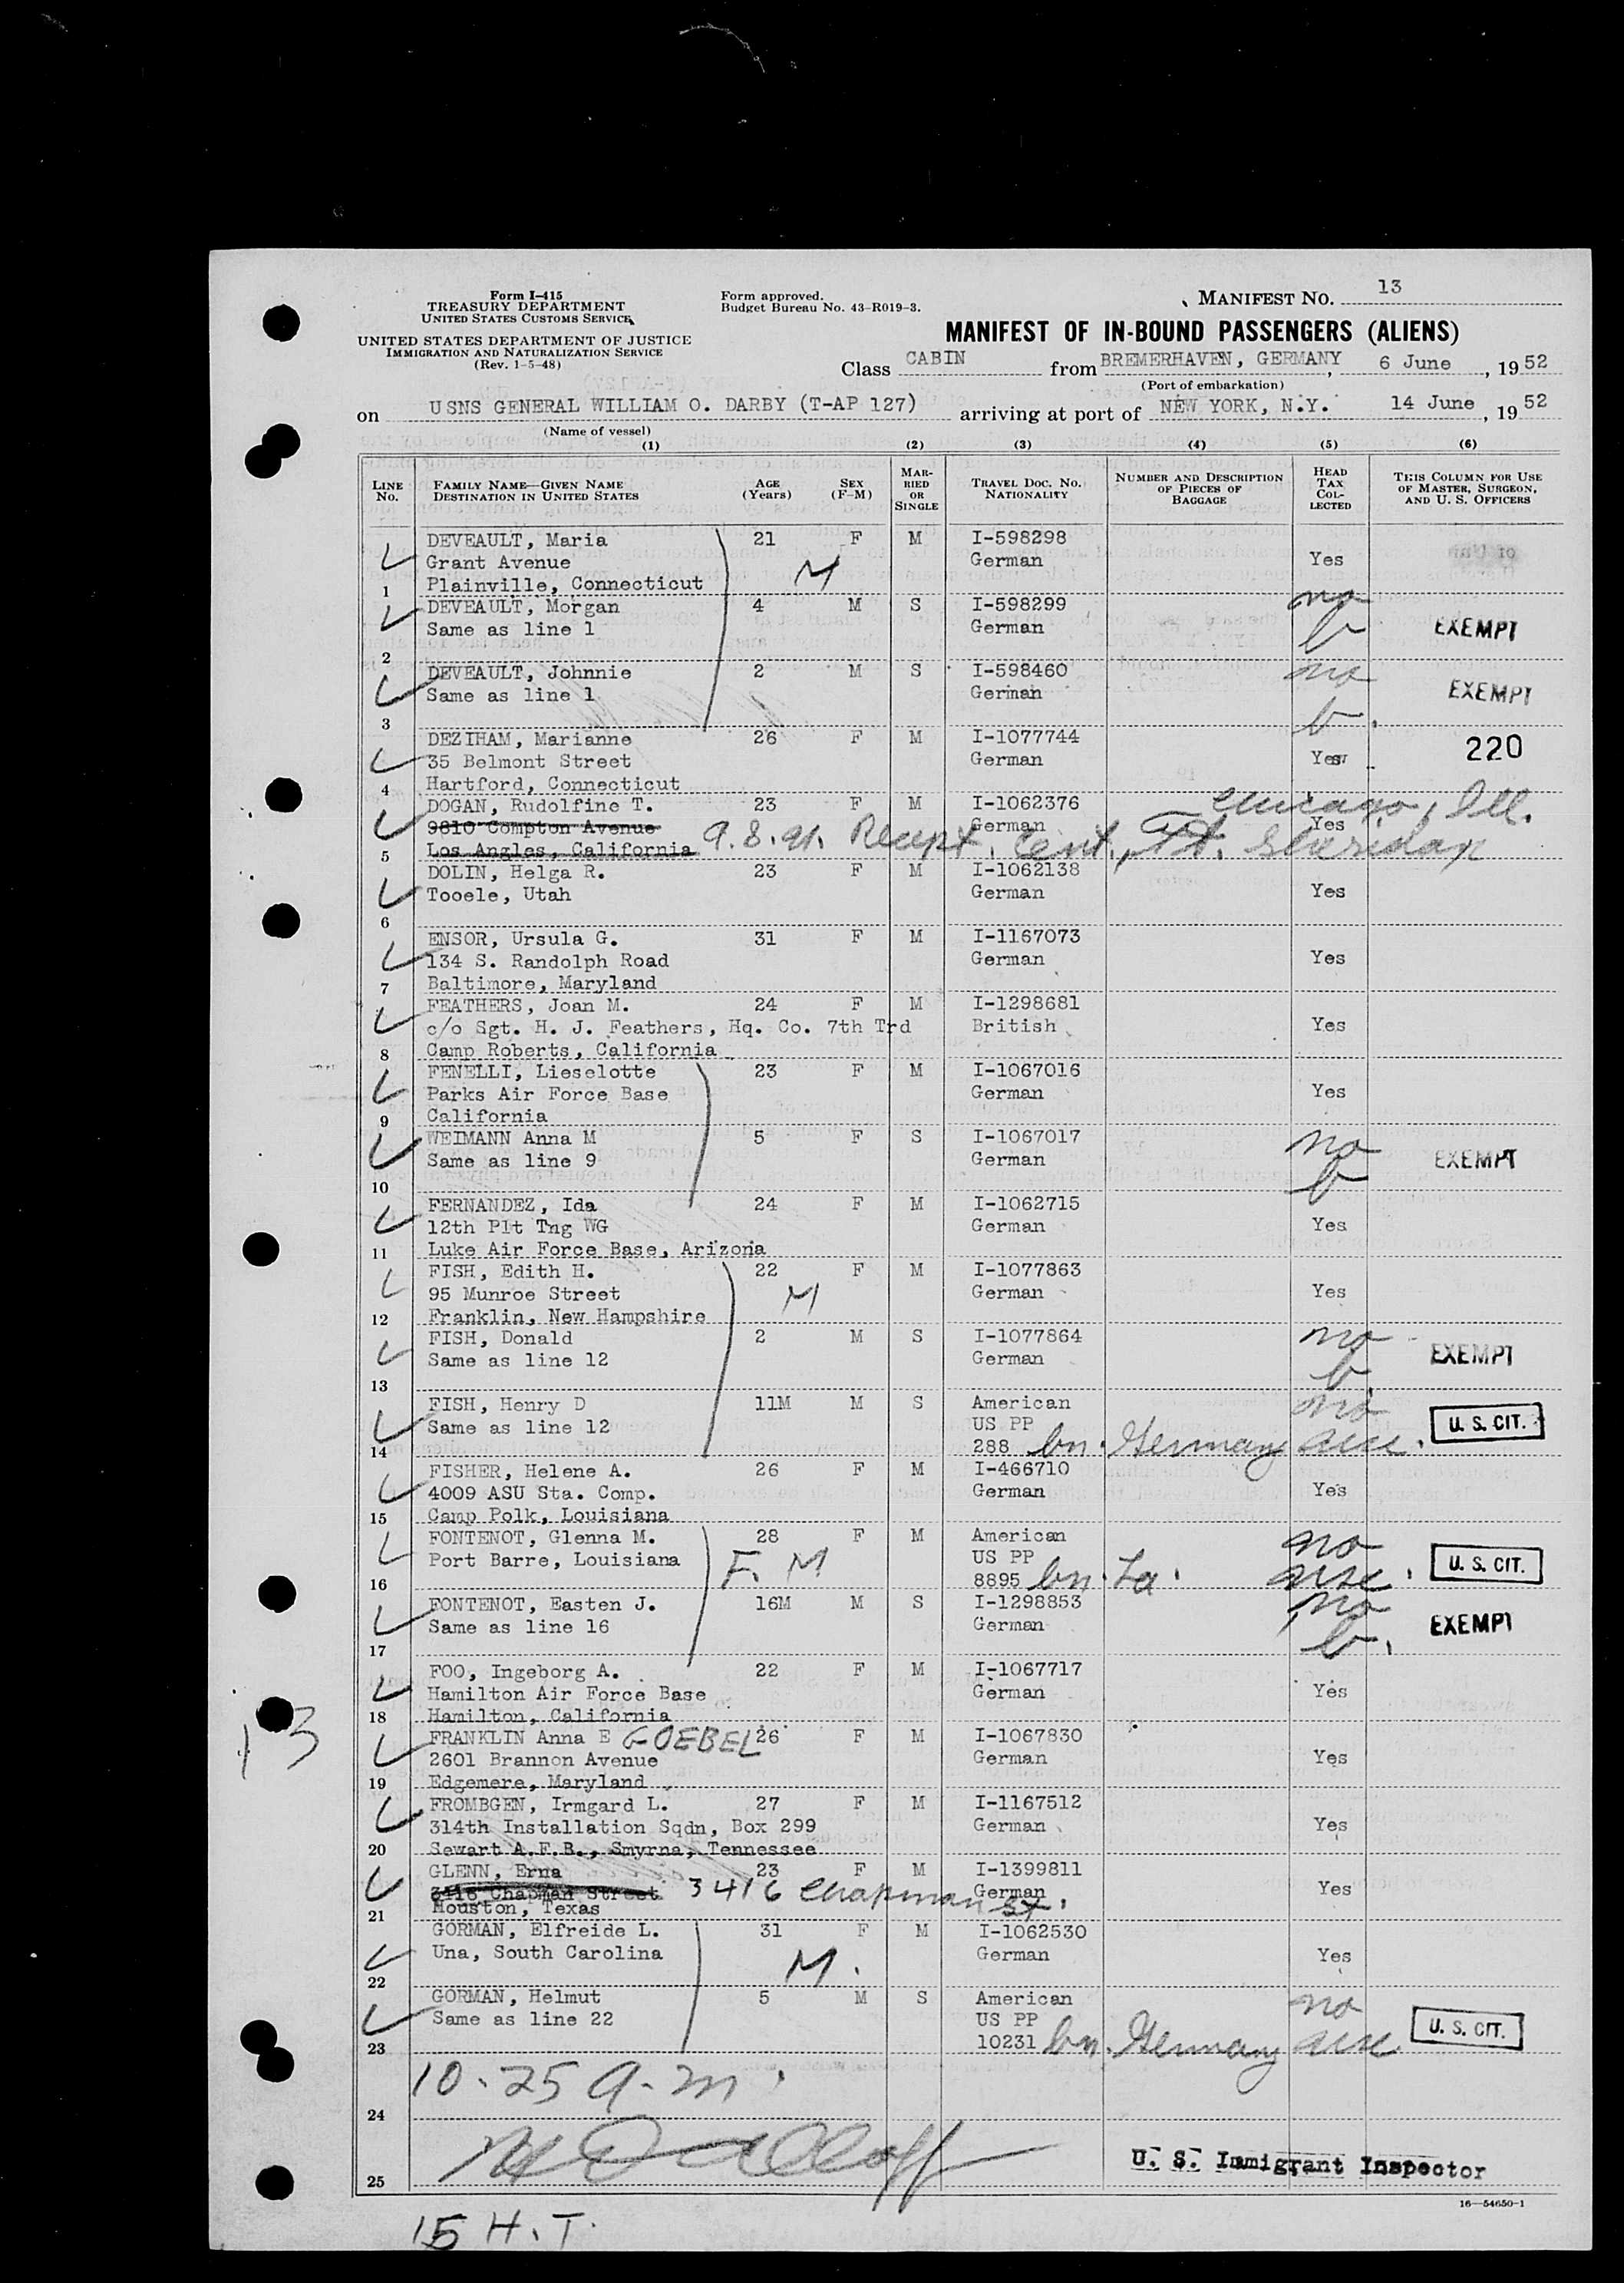 Form I-415
TREASURY DEPARTMENT
UNITED STATES CUSTOMS SERVICE
UNITED STATES DEPARTMENT OF JUSTICE
IMMIGRATION AND NATURALIZATION SERVICE
(Rev. 1-5-48)
Form approved.
Budget Bureau No. 43-R019-3.
MANIFEST NO. 13
MANIFEST OF IN-BOUND PASSENGERS (ALIENS)
Class CABIN from BREMERHAVEN, GERMANY, 6 June, 1952
(Port of embarkation)
on USNS GENERAL WILLIAM O. DARBY (T-AP 127) arriving at port of NEW YORK, N.Y. 14 June, 1952
(Name of vessel)
(1) (2) (3) (4) (5) (6)
LINE No. FAMILY NAME—GIVEN NAME DESTINATION IN UNITED STATES AGE (Years) SEX (F-M) MARRIED OR SINGLE TRAVEL DOC. NO. NATIONALITY NUMBER AND DESCRIPTION OF PIECES OF BAGGAGE HEAD TAX COLLECTED THIS COLUMN FOR USE OF MASTER, SURGEON, AND U. S. OFFICERS
DEVEAULT, Maria 21 F M I-598298
Grant Avenue M German Yes
1 Plainville, Connecticut
DEVEAULT, Morgan 4 M S I-598299 no
Same as line 1 German b EXEMPT
2
DEVEAULT, Johnnie 2 M S I-598460 no
Same as line 1 German b. EXEMPT
3
DEZIHAM, Marianne 26 F M I-1077744 220
35 Belmont Street German Yes
4 Hartford, Connecticut
DOGAN, Rudolfine T. 23 F M I-1062376 Chicago, Ill.
9810 Compton Avenue German Yes
5 Los Angles, California Recept. Cent., Ft. Sheridan
DOLIN, Helga R. 23 F M I-1062138
Tooele, Utah German Yes
6
ENSOR, Ursula G. 31 F M I-1167073
134 S. Randolph Road German Yes
7 Baltimore, Maryland
FEATHERS, Joan M. 24 F M I-1298681
c/o Sgt. H. J. Feathers, Hq. Co. 7th Trd British Yes
8 Camp Roberts, California
FENELLI, Lieselotte 23 F M I-1067016
Parks Air Force Base German Yes
9 California
WEIMANN Anna M 5 F S I-1067017 no
Same as line 9 German b EXEMPT
10
FERNANDEZ, Ida 24 F M I-1062715
12th Plt Tng WG German Yes
11 Luke Air Force Base, Arizona
FISH, Edith H. 22 F M I-1077863
95 Munroe Street M German Yes
12 Franklin, New Hampshire
FISH, Donald 2 M S I-1077864 no
Same as line 12 German b. EXEMPT
13
FISH, Henry D 11M M S American no
Same as line 12 US PP U. S. CIT.
14 288 bn. Germany
FISHER, Helene A. 26 F M I-466710
4009 ASU Sta. Comp. German Yes
15 Camp Polk, Louisiana
FONTENOT, Glenna M. 28 F M American no
Port Barre, Louisiana F. M US PP U. S. CIT.
16 8895 bn. La.
FONTENOT, Easten J. 16M M S I-1298853 no
Same as line 16 German b. EXEMPT
17
FOO, Ingeborg A. 22 F M I-1067717
Hamilton Air Force Base German Yes
18 Hamilton, California
FRANKLIN Anna E GOEBEL 26 F M I-1067830
2601 Brannon Avenue German Yes
19 Edgemere, Maryland
13
FROMBGEN, Irmgard L. 27 F M I-1167512
314th Installation Sqdn, Box 299 German Yes
20 Sewart A.F.B., Smyrna, Tennessee
GLENN, Erna 23 F M I-1399811
3416 Chapman Street 3416 Chapman St. German Yes
21 Houston, Texas
GORMAN, Elfreide L. 31 F M I-1062530
Una, South Carolina M. German Yes
22
GORMAN, Helmut 5 M S American no
Same as line 22 US PP U. S. CIT.
23 10231 bn. Germany
10.25 a.m.
24
U. S. Immigrant Inspector
25
16—54650-1
15 H.T.